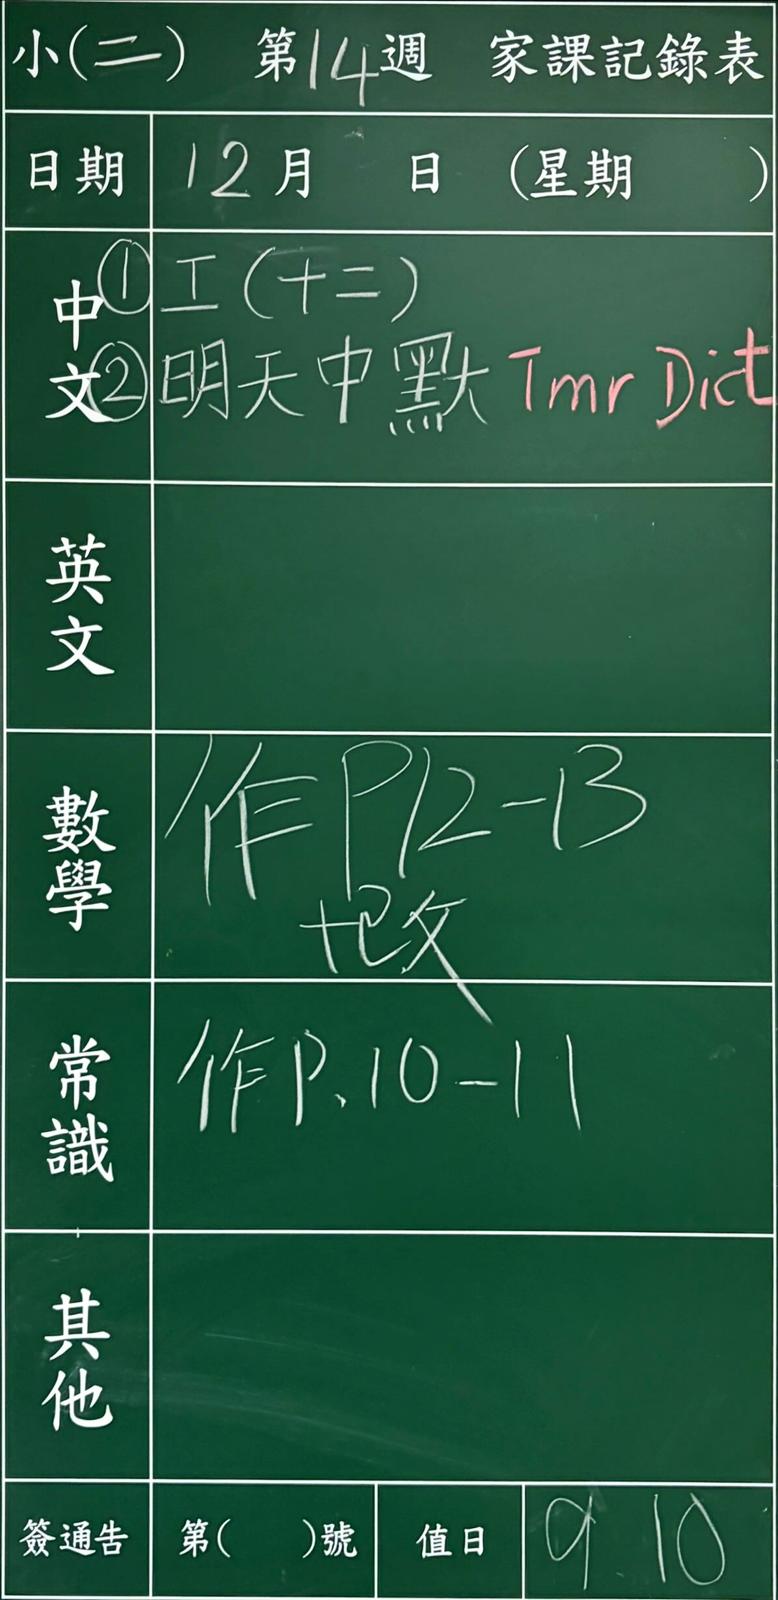 小(二) 第14週 家課記錄表
日期 12月 日 (星期 )
中文 ①工(十二)
②明天中默 Tmr Dict
英文
數學 作P12-13
+改
常識 作P.10-11
其他
簽通告 第( )號 值日 9 10